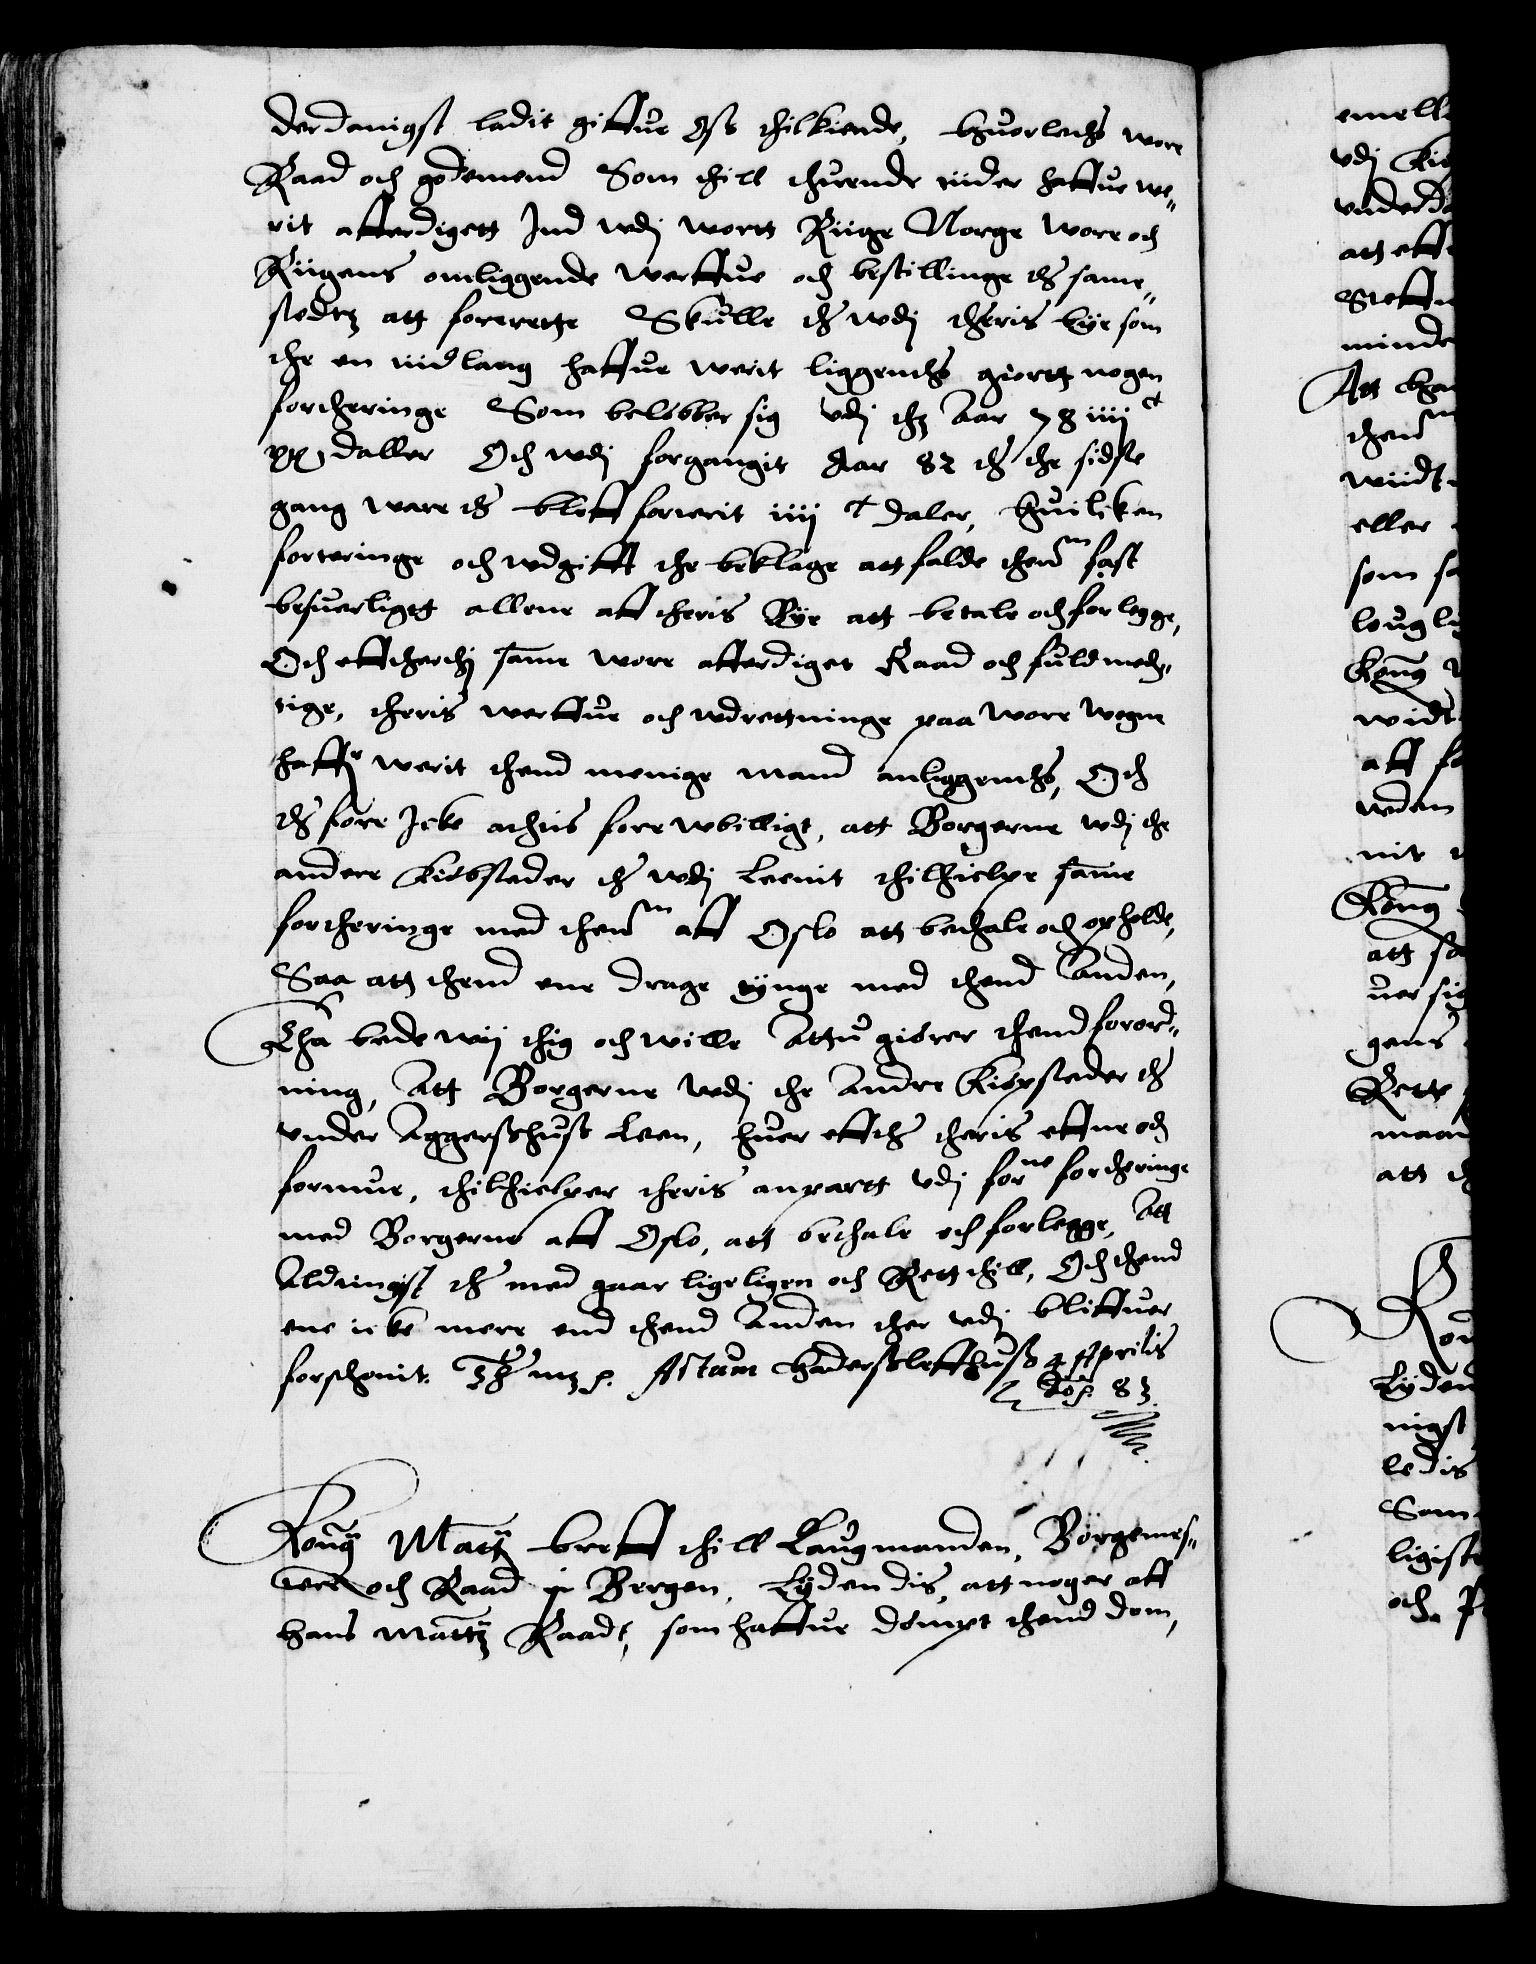 derdanigst ladit giffue Oss thilkiende, Huorledis wore
Raad och godemend Som thill thuende tiider haffue we¬
rit afferdigett Ind wdj wortt Riige Norge wore och
Riigens omliggende werffue och bestillinge der same¬
stedtz att forrette Skulle der wdj theris bye som
the en tiid lang haffue werit liggendis giortt nogen
fortheringe Som beløbber sig vdj thz Aar 78 iiij ct
xx daller Och wdj forgangit Aar 82 der the sidste
gang ware der bleff forterit iiij ct daler, Huilcken
forteringe och wdgifft the beklage att falde thennom fast
besuerligtt allene aff theris Bye att betale och forlegge,
Och effterthj same wore afferdiget Raad och fuldmech¬
tige, theris werffue och wdrettninge paa wore wegne
haffr werit thend menige mand anliggendis, Och
der fore Icke achtis fore wbilligt, att Borgerne wdj the
andere Kiøbsteder der wdj Leenit thilhielpe same
fortheringe med thennom aff Oslo att bethale och opholde,
Saa att thend ene drage tynge med thend Anden,
Tha bede wij thig och wille Attu giører thend forord¬
ning, Att Borgerne wdj the Andre Kiøpsteder der
vnder Aggershuss Leen, huer effther theris effne och
formue, thilhielper theris anpartt vdj forne fortheringe
med Borgerne aff Oslo, att bethale och forlegge, Att
Aldtingist der med gaar ligeligen och Rett thill, Och thend
ene icke mere end thend Anden ther vdj bliffuer
forschonit. Thr mz s. Actum Haderssleffhuss 4 Aprilis
Aar 83.
Kong Matz breff thill Laugmanden, Børgemes¬
tere och Raad ji Bergen, Lydendis, att noger aff
Hans Mattz Raadt, som haffue dømpt thend dom,